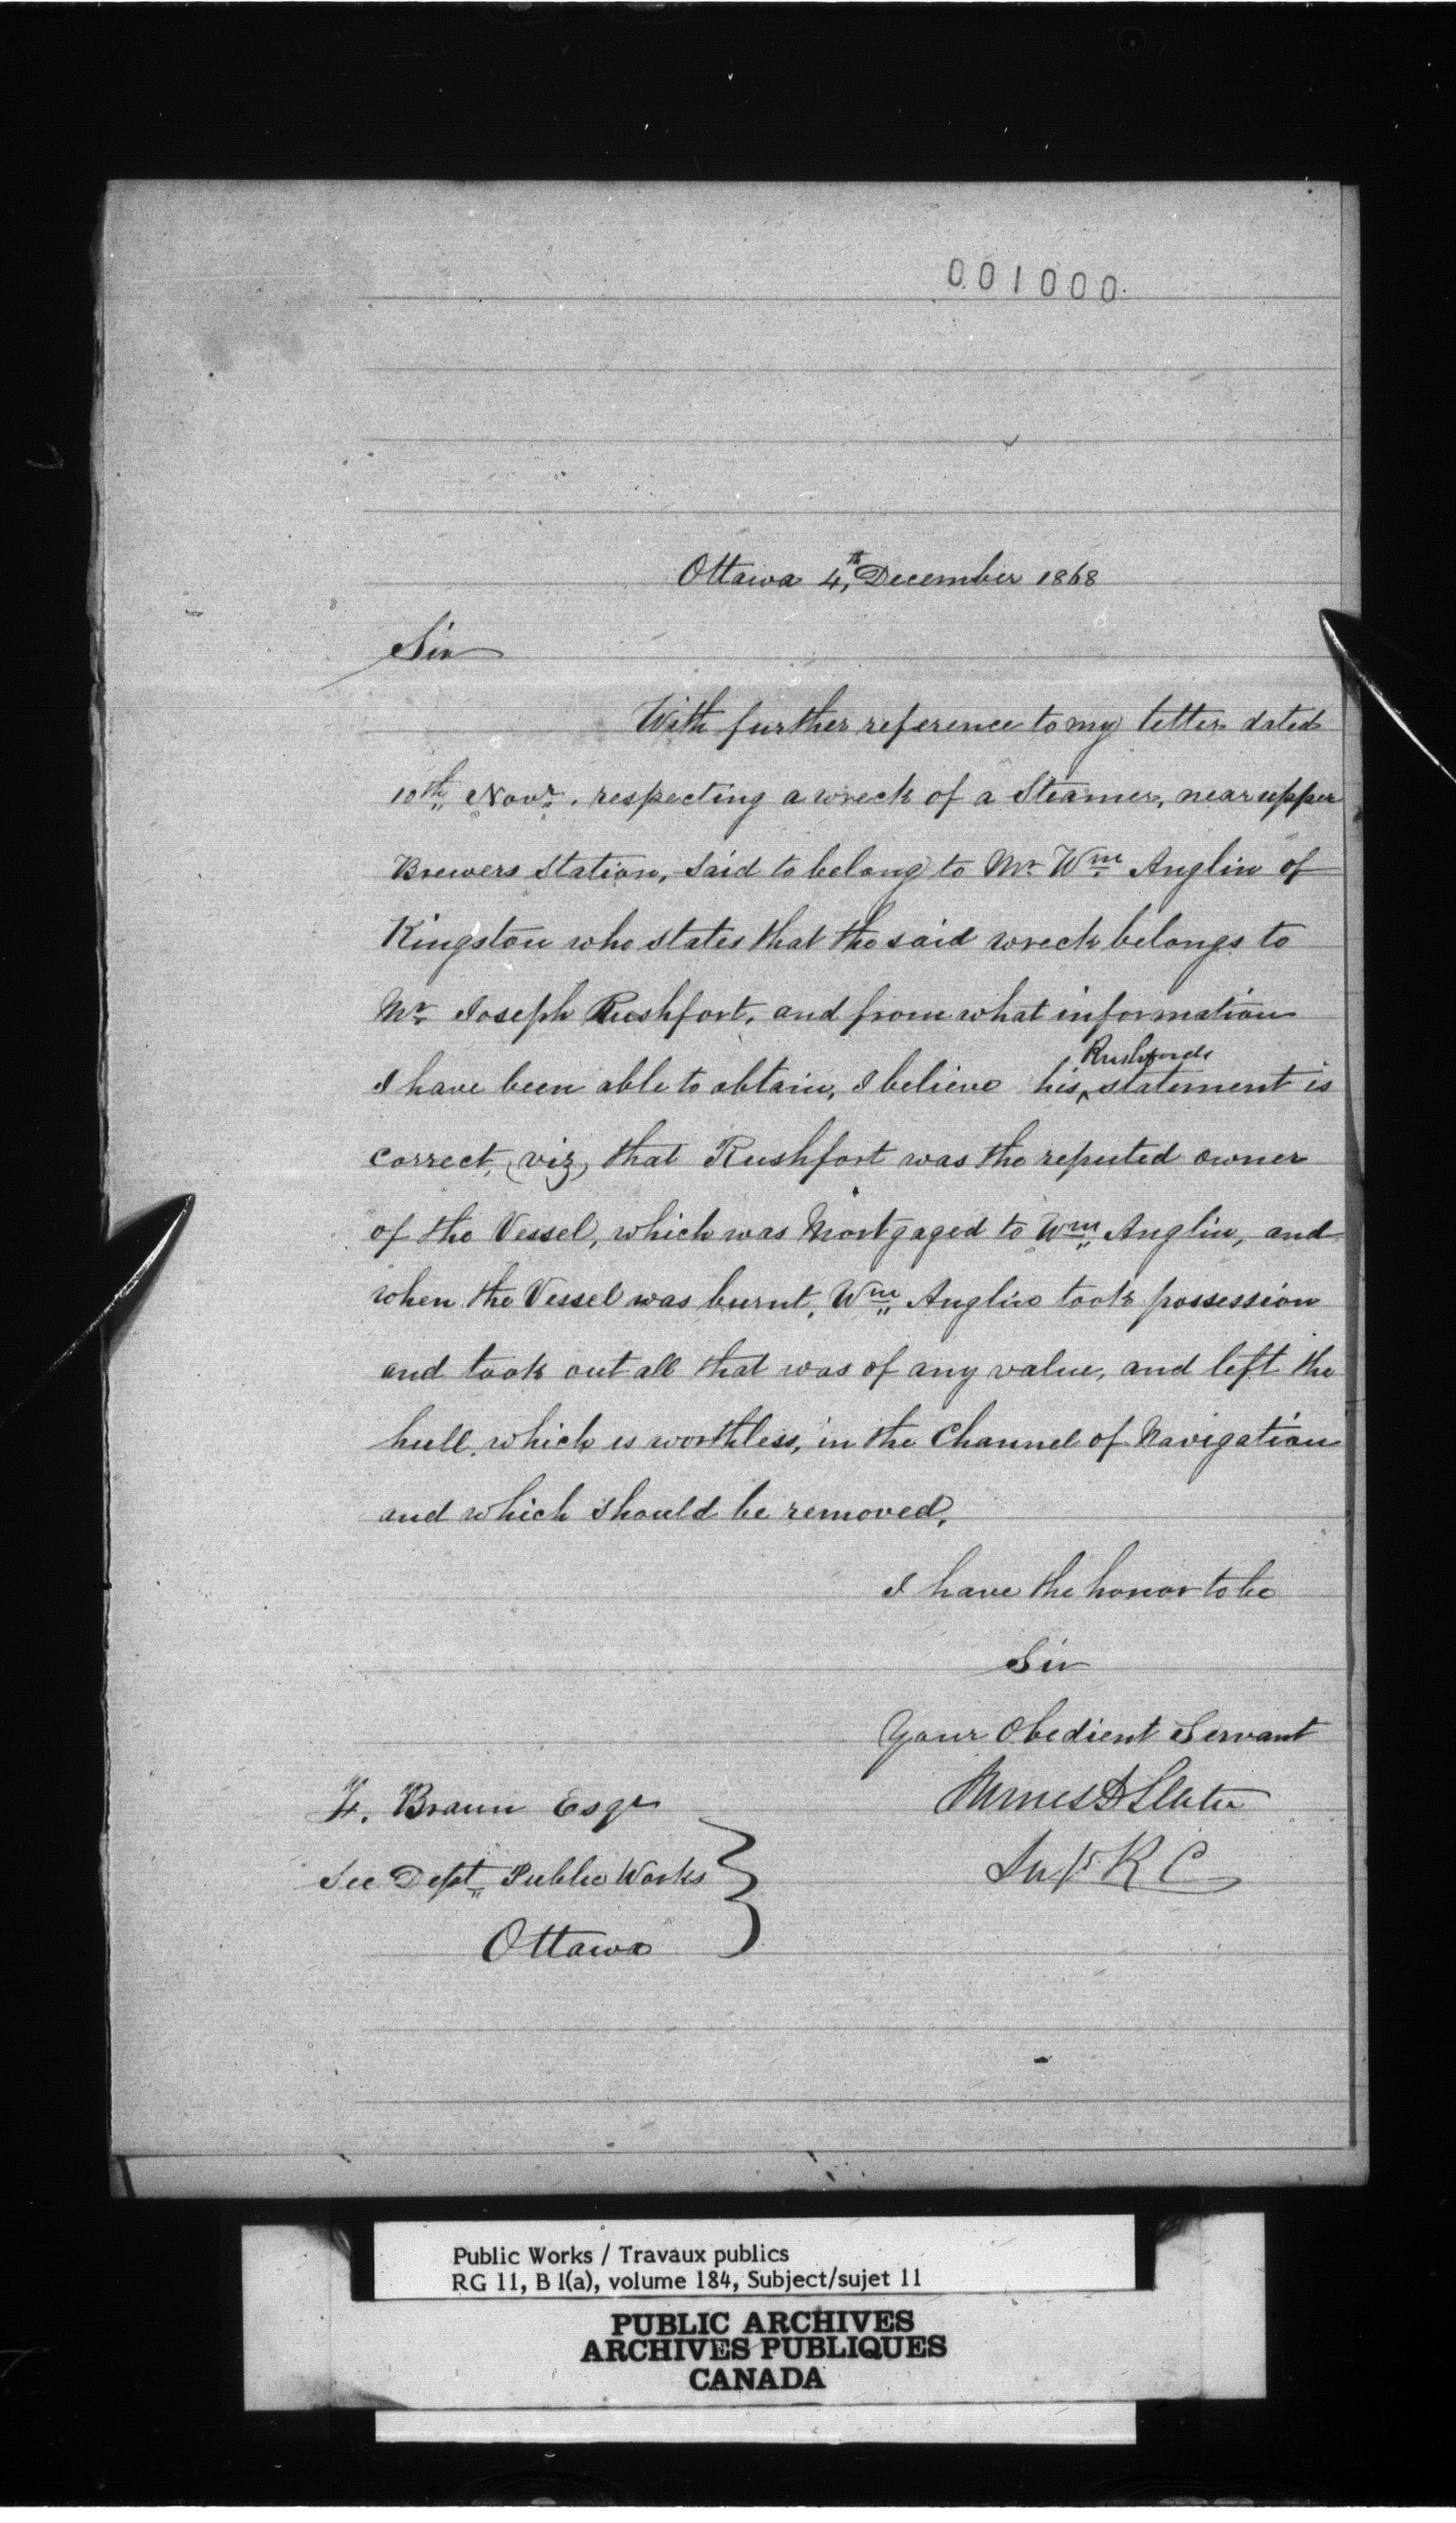 001000
Ottawa 4th, December 1868
Sir
With further reference to my letter dated
10th Novr. respecting a wreck of a Steamer, near upper
Brewers Station, said to belong to Mr. Wm Anglin of
Kingston who states that the said wreck belongs to
Mr. Joseph Rushfort, and from what information
I have been able to obtain, I believe his Rushfords statement is
correct, (viz) that Rushfort was the reputed owner
of the Vessel, which was Mortgaged to Wm Anglin, and
when the Vessel was burnt, Wm Anglin took possession
and took out all that was of any value, and left the
hull, which is worthless, in the Channel of Navigation
and which should be removed.
I have the honor to be
Sir
Your Obedient Servant
James D Slater
Supt R C
F. Braun Esqr
Sec Dept Public Works
Ottawa
Public Works / Travaux publics
RG 11, B 1(a), volume 184, Subject/sujet 11
PUBLIC ARCHIVES
ARCHIVES PUBLIQUES
CANADA